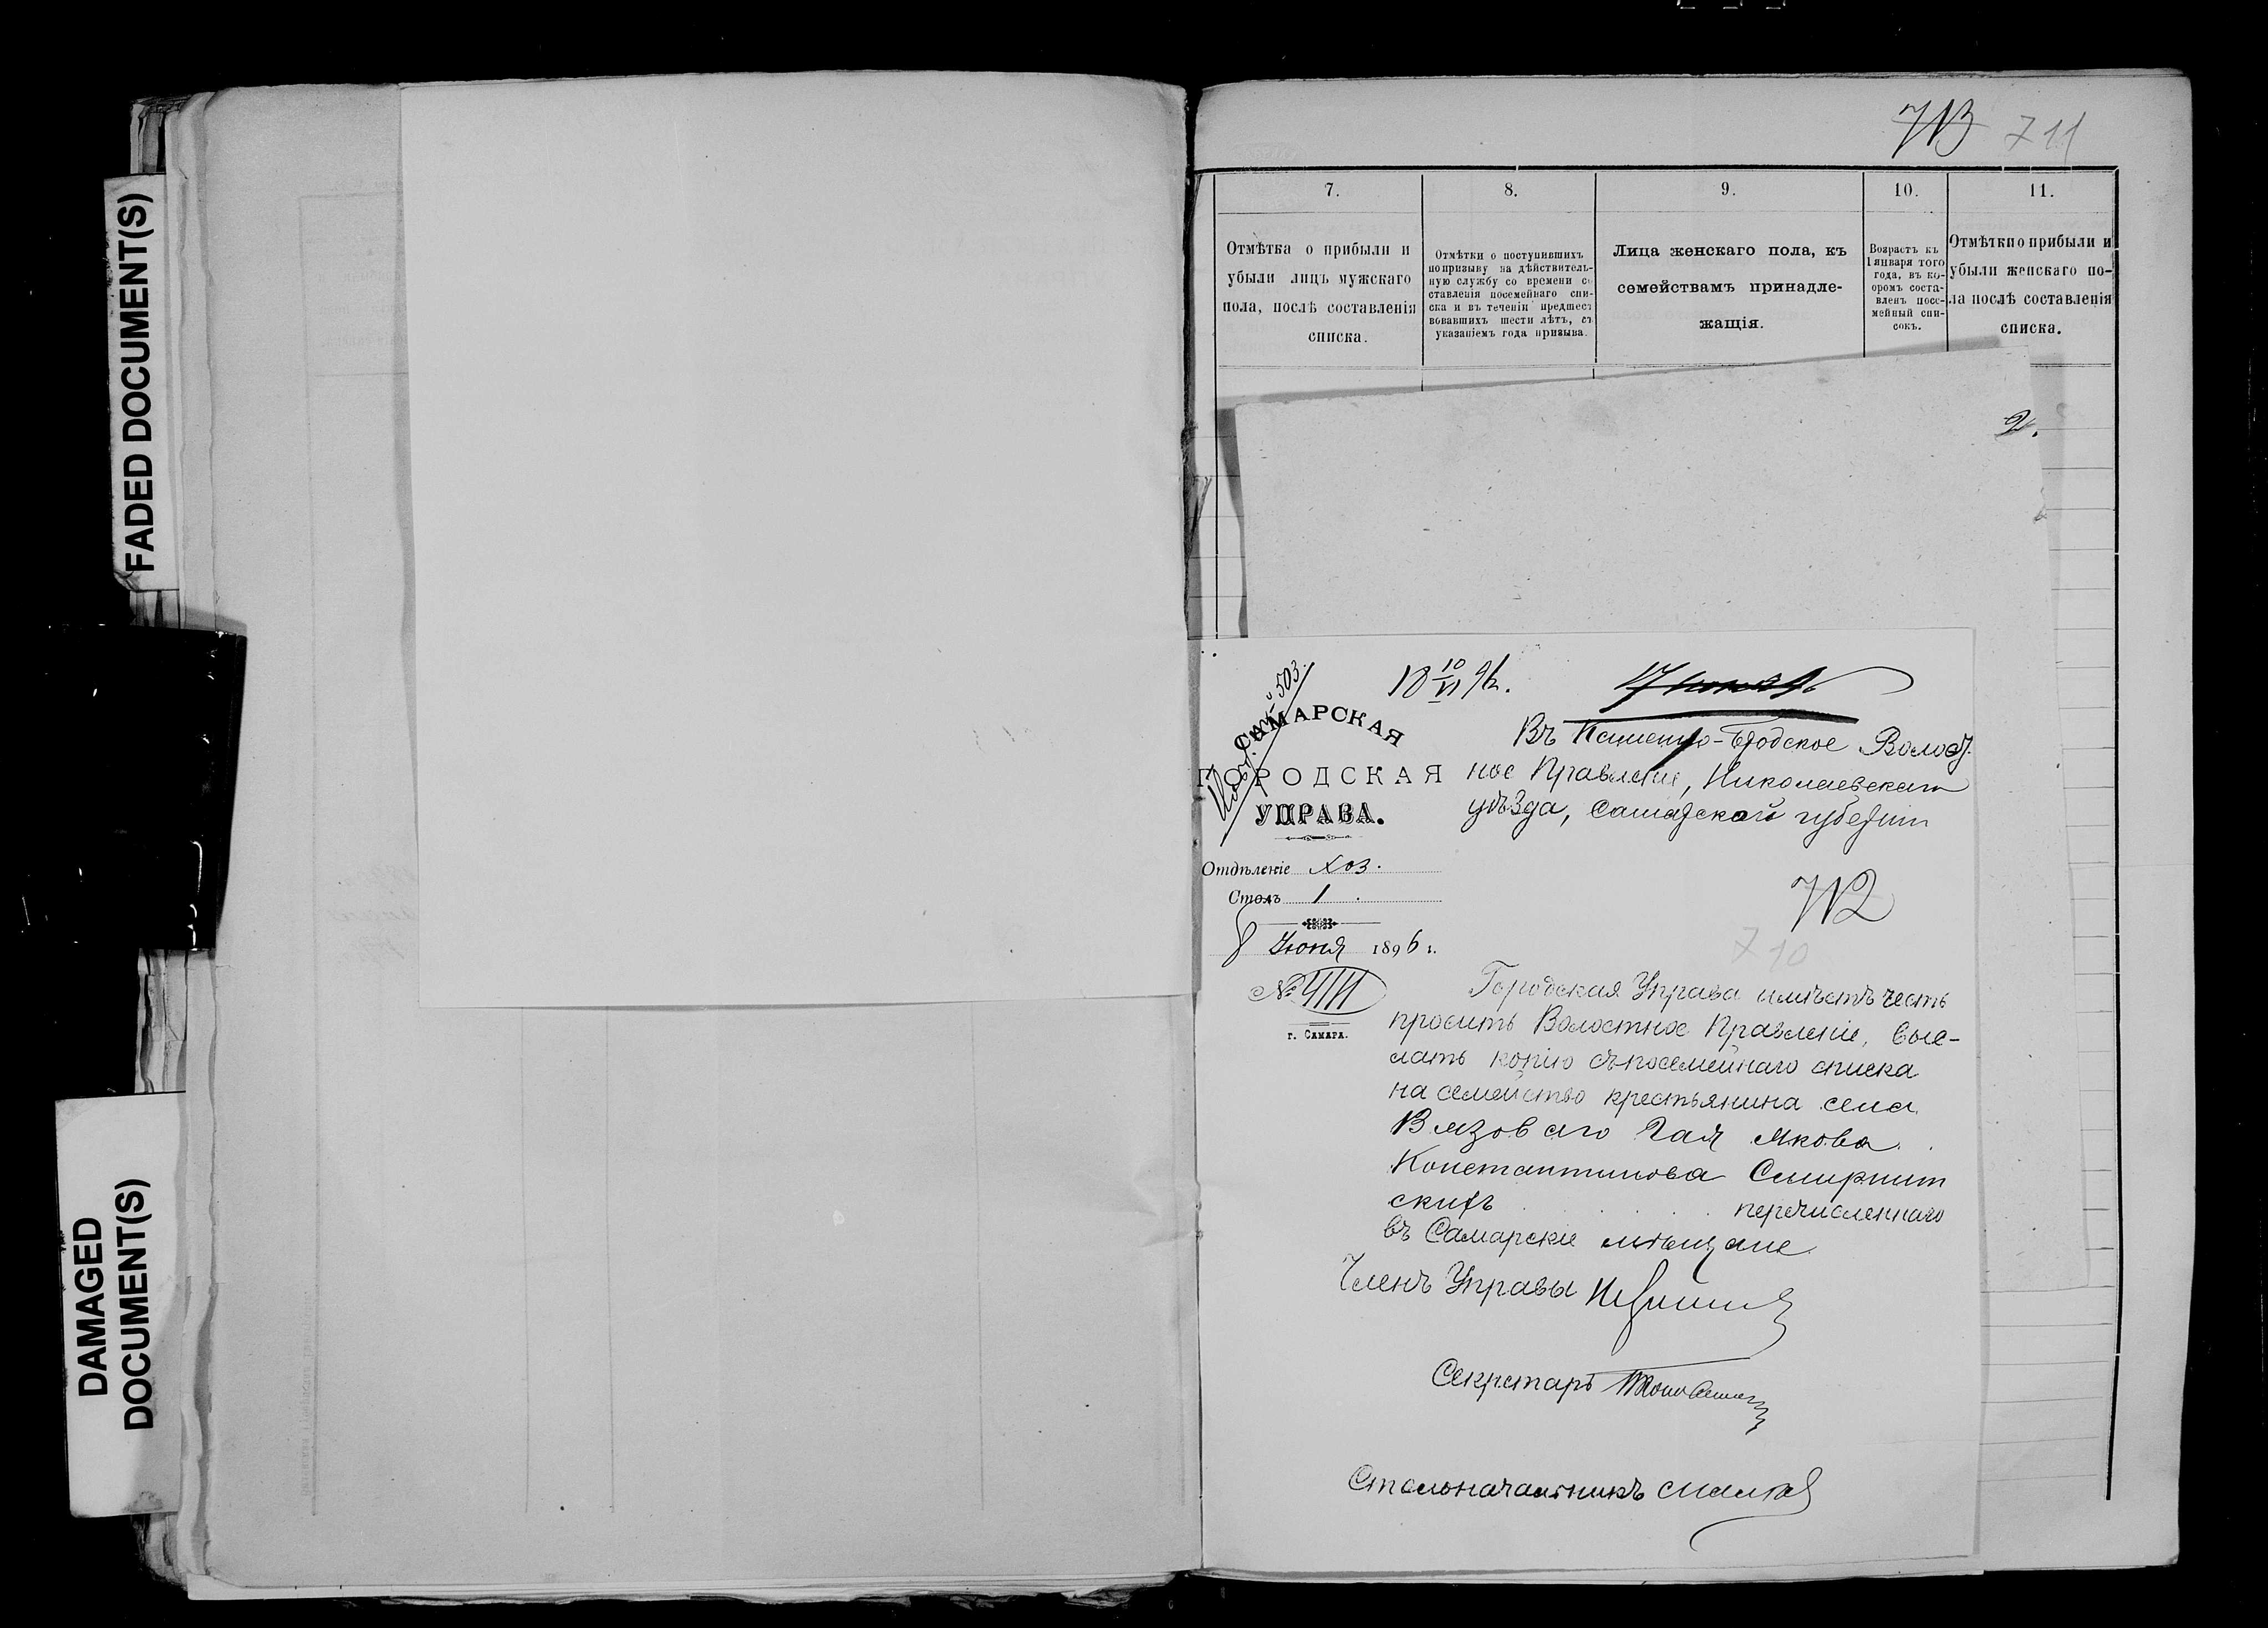 FADED DOCUMENT(S)
DAMAGED
DOCUMENT(S)
713 711
7.
8.
9.
10.
11.
Отмѣтка о прибыли и
убыли лицъ мужскаго
пола, послѣ составленія
списка.
Отмѣтки о поступившихъ
по призыву на дѣйствитель-
ную службу со времени со
ставленія посемейнаго спи-
ска и въ теченіи предшест
вовавшихъ шести лѣтъ, съ
указаніемъ года призыва.
Лица женскаго пола, къ
семействамъ принадле-
жащія.
Возрастъ къ
1 января того
года, въ ко-
оромъ соста-
вленъ посе-
мейный спи-
сокъ.
Отмѣтки о прибыли и
убыли женскаго по-
ла послѣ составленія
списка.
2.
503.
18 10/VI 96.
САМАРСКАЯ
ГОРОДСКАЯ
УПРАВА.
Въ Каменно-Бродское Волост.
ное Правленіе, Николаевскаго
уѣзда, Самарской губерніи
Отдѣленіе Хоз.
Столъ 1.
8 Июня 1896 г.
№ 4111
г. САМАРА.
712
710
Городская Управа имѣетъ честь
просить Волостное Правленіе, выс-
лать копію съ посемейнаго списка
на семейство крестьянина села
Вязоваго Гая Якова
Константинова
скихъ перечисленнаго
въ Самарскіе мѣщане
Членъ Управы
Секретарь
Столоначальникъ